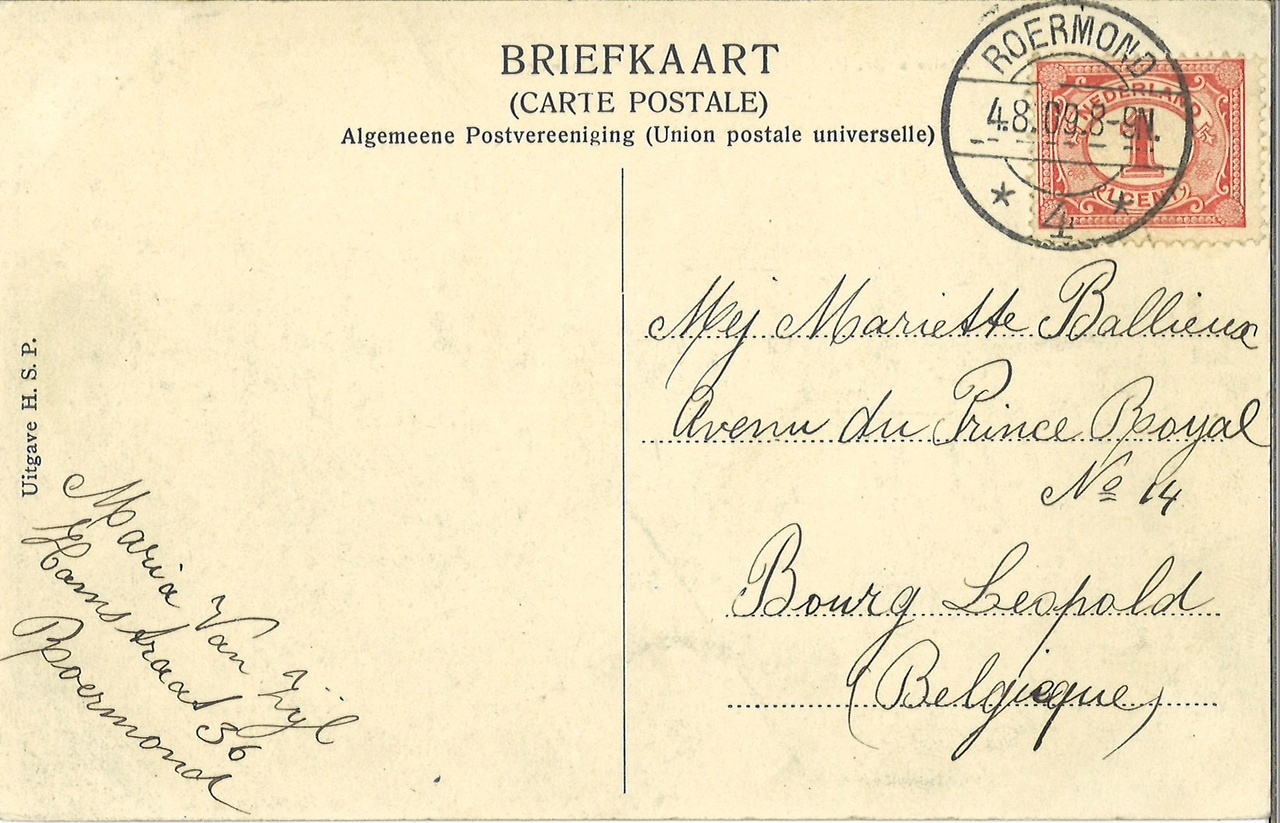 BRIEFKAART
(CARTE POSTALE)
Algemeene Postvereeniging (Union postale universelle)
ROERMOND
4.8.09.8-9N.
* 4 *
NEDERLAND
1
1 CENT
Mej Mariette Ballieux
Avenu du Prince Royal
No 14
Bourg Leopold
(Belgieque)
Uitgave H. S. P.
Maria Van Zijl
Hamstraat 36
Roermond